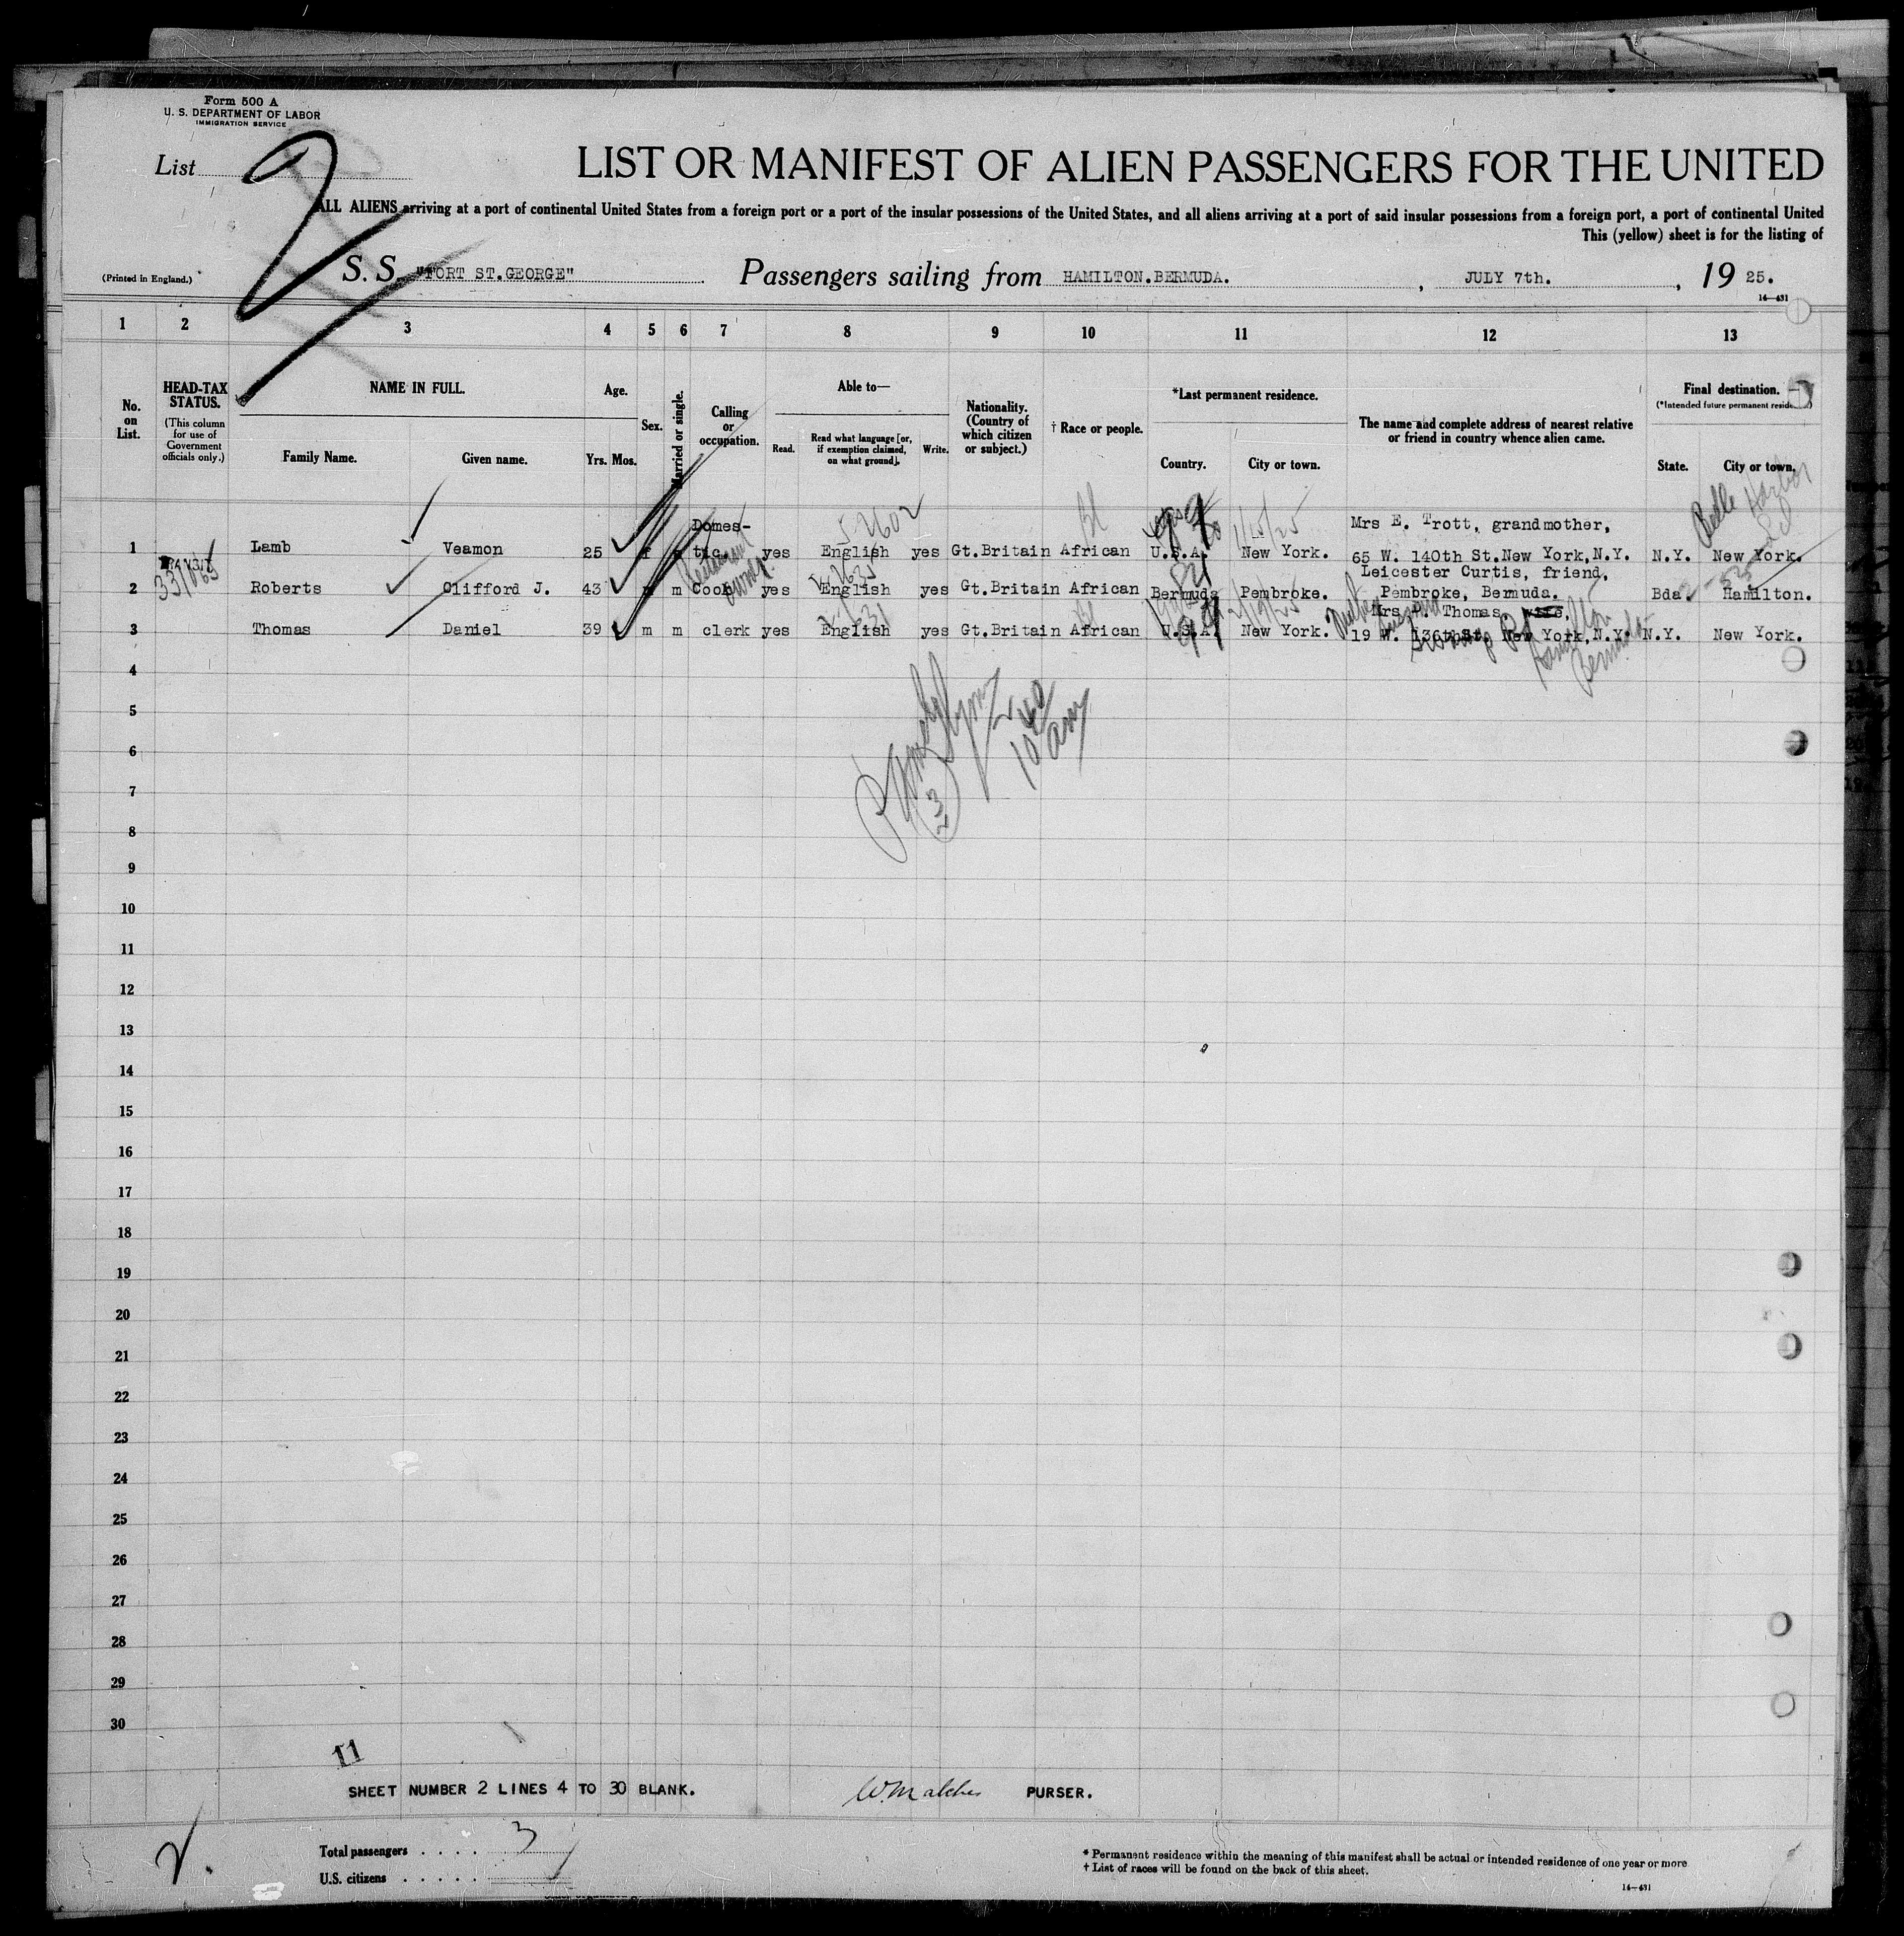 Form 500 A
U. S. DEPARTMENT OF LABOR
IMMIGRATION SERVICE
List 2
LIST OR MANIFEST OF ALIEN PASSENGERS FOR THE UNITED
ALL ALIENS arriving at a port of continental United States from a foreign port or a port of the insular possessions of the United States, and all aliens arriving at a port of said insular possessions from a foreign port, a port of continental United
This (yellow) sheet is for the listing of
(Printed in England.)
S. S. "FORT ST.GEORGE" Passengers sailing from HAMILTON.BERMUDA. , JULY 7th. , 19 25.
14—431
1 2 3 4 5 6 7 8 9 10 11 12 13
No. on List.
HEAD-TAX STATUS.
(This column for use of Government officials only.)
NAME IN FULL.
Family Name. Given name.
Age.
Yrs. Mos.
Sex.
Married or single.
Calling or occupation.
Able to—
Read. Read what language [or, if exemption claimed, on what ground]. Write.
Nationality. (Country of which citizen or subject.)
† Race or people.
*Last permanent residence.
Country. City or town.
The name and complete address of nearest relative or friend in country whence alien came.
Final destination.
(*Intended future permanent residence)
State. City or town.
Belle Harbor
5-2602
1/15/25
Domes-
Mrs E. Trott, grandmother,
1 Lamb Veamon 25 f tic. yes English yes Gt.Britain African U.S.A. New York. 65 W. 140th St.New York,N.Y. N.Y. New York.
TRANSIT
Leicester Curtis, friend,
2 Roberts Clifford J. 43 m m Cook yes English yes Gt.Britain African Bermuda Pembroke. Pembroke, Bermuda. Bda. Hamilton.
Mrs D. Thomas, wife,
3 Thomas Daniel 39 m m clerk yes English yes Gt.Britain African U.S.A. New York. 19 W. 136th St. New York,N.Y. N.Y. New York.
Hamilton
Bermuda
4
10 40 am
5
6
7
3
8
9
10
11
12
13
14
15
16
17
18
19
20
21
22
23
24
25
26
27
28
29
30
11
SHEET NUMBER 2 LINES 4 TO 30 BLANK. PURSER.
2.
Total passengers . . . . 3
U.S. citizens . . . . .
* Permanent residence within the meaning of this manifest shall be actual or intended residence of one year or more
† List of races will be found on the back of this sheet.
14—431